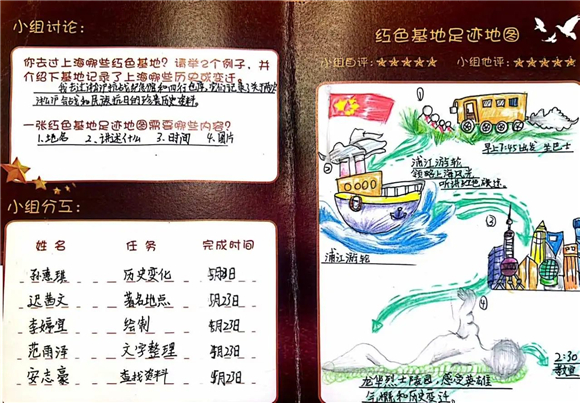 小组讨论:
你去过上海哪些红色基地?请举2个例子,并
介绍下基地记录了上海哪些历史或变迁
我去过淞沪抗战纪念馆和四行仓库,它们记录了关于
淞沪会战和民族抗日的珍贵历史资料。
一张红色基地足迹地图需要哪些内容?
1.地名 2.讲述什么 3.时间 4.图片
小组分工:
姓名 任务 完成时间
孙惠琪 历史变化 5月23日
迟茜文 著名地点 5月23日
李福宜 绘制 5月23日
范雨泽 文字整理 5月23日
安志豪 查找资料 5月23日
红色基地足迹地图
小组自评:★★★★★ 小组他评:★★★★★
①
早上7:45出发 坐巴士
②
浦江游轮
领略上海风光
听讲红色变迁。
浦江游轮
③
④
2:30
龙华烈士陵园,感受英雄
气概和历史变迁。